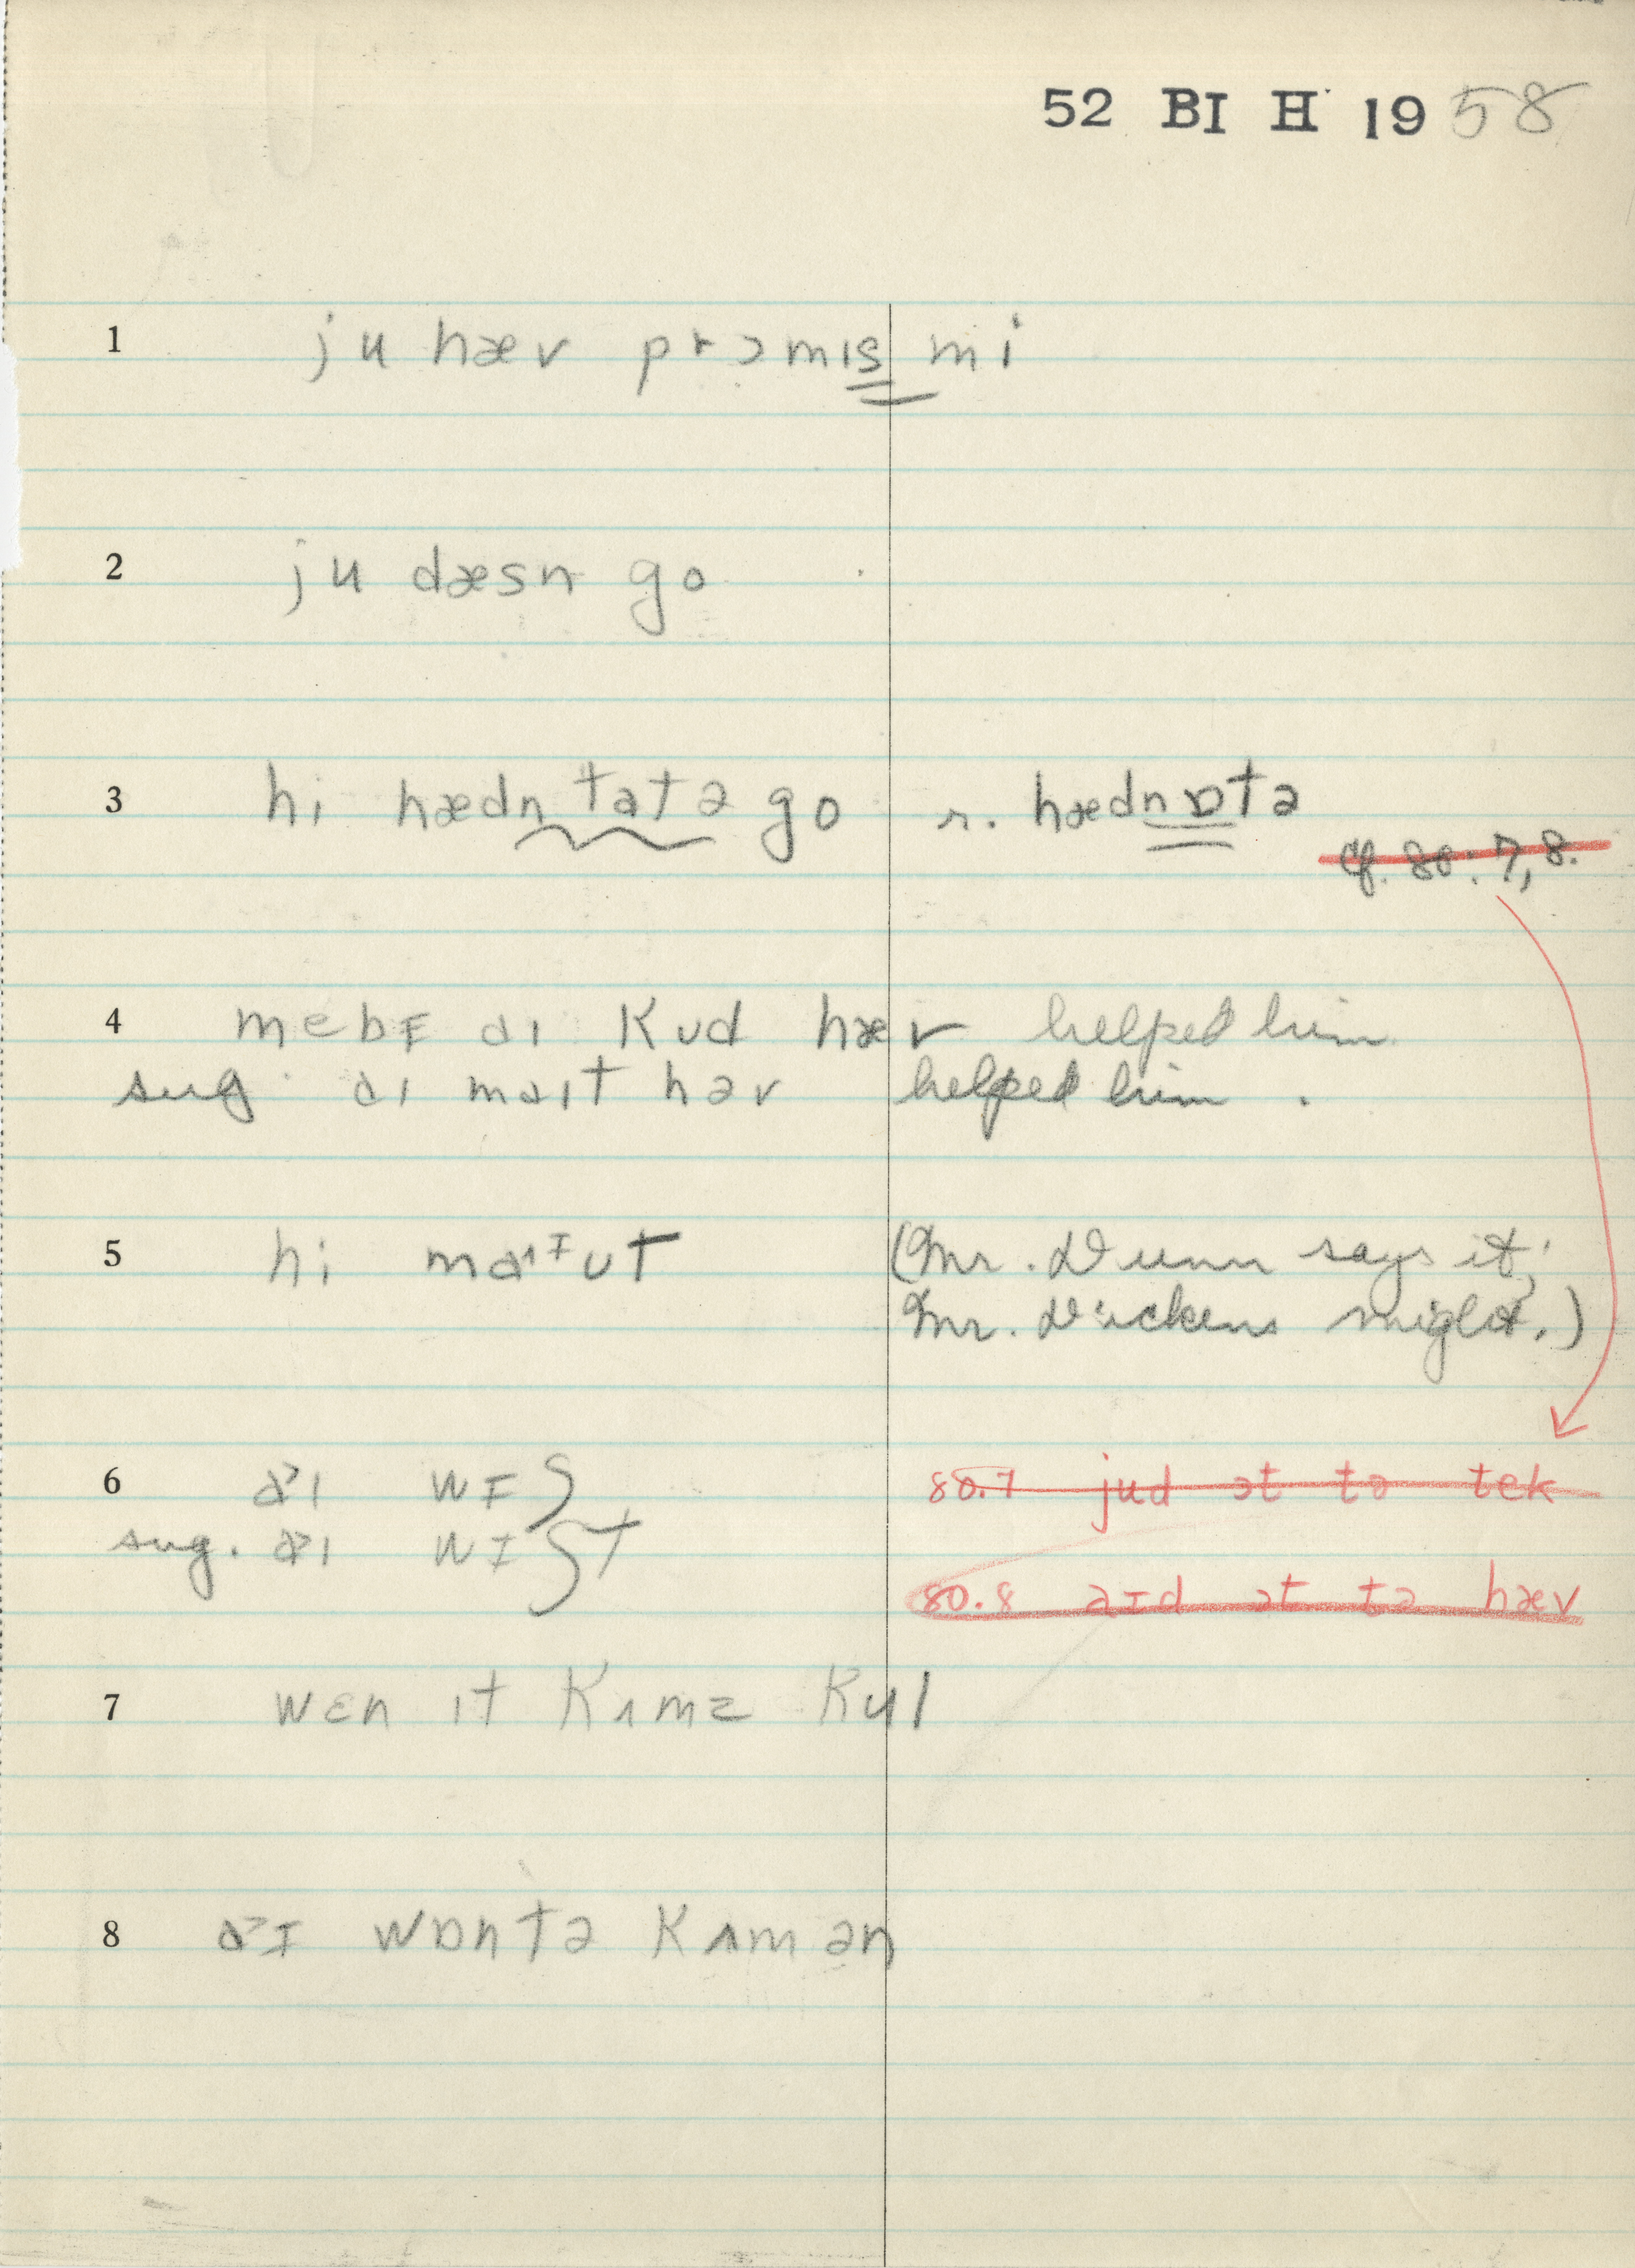 52 BI H 1958
1 ju hæv prɔmɪs mi
2 ju dæsn go
3 hi hædn tətə go r. hædnɒtə
cf. 80:7,8.
4 mebɪ aɪ kʊd hæv helped him
sug. aɪ maɪt həv helped him.
5 hi maɪt (Mr. Dunn says it;
Mr. Dickens might.)
6 aɪ wɪʃ 80.7 jud ɔt tə tek
sug. aɪ wɪʃt
80.8 aɪd ɔt tə hæv
7 wɛn ɪt kʌmz kul
8 aɪ wɒntə kʌm ən